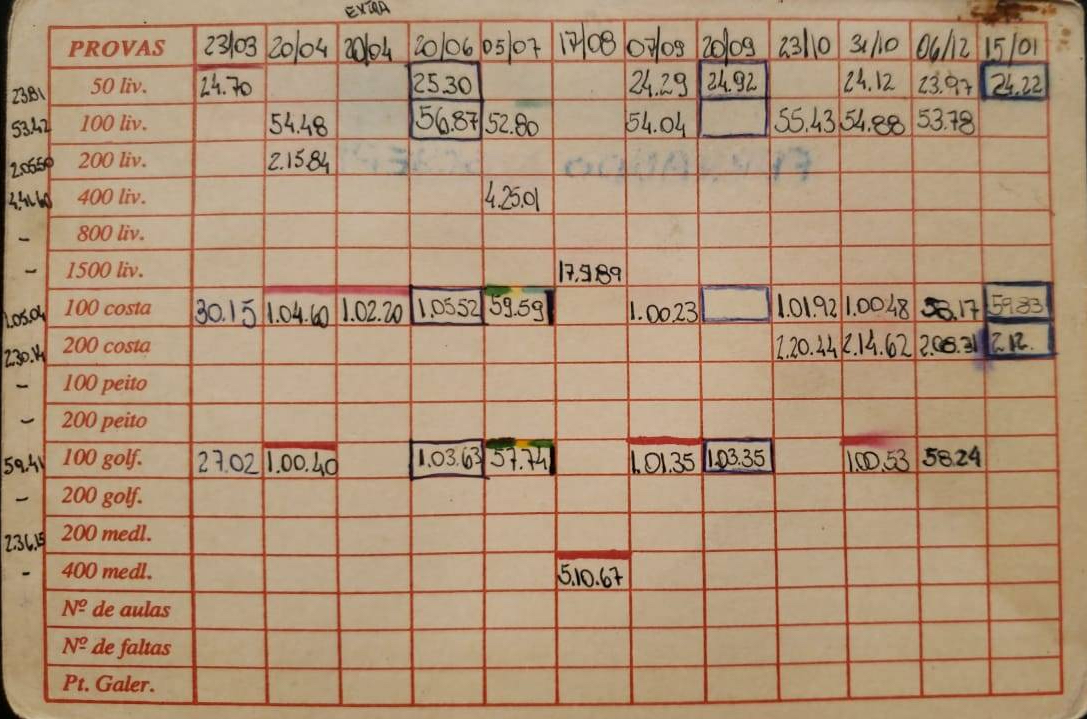 EXTRA
PROVAS 23/03 20/04 20/04 20/06 05/07 17/08 07/09 20/09 23/10 31/10 06/12 15/01
23.81 50 liv. 24.70 25.30 24.29 24.92 24.12 23.97 24.22
53.42 100 liv. 54.48 56.87 52.80 54.04 55.43 54.88 53.78
2.05.50 200 liv. 2.15.84
4.41.60 400 liv. 4.25.01
- 800 liv.
- 1500 liv. 17.9.89
1.05.04 100 costa 30.15 1.04.60 1.02.20 1.05.52 59.59 1.00.23 1.01.92 1.00.48 58.17 59.83
2.30.14 200 costa 2.20.44 2.14.62 2.08.31 2.12.
- 100 peito
- 200 peito
59.41 100 golf. 27.02 1.00.40 1.03.63 57.74 1.01.35 1.03.35 1.00.53 58.24
- 200 golf.
2.36.15 200 medl.
- 400 medl. 5.10.67
Nº de aulas
Nº de faltas
Pt. Galer.